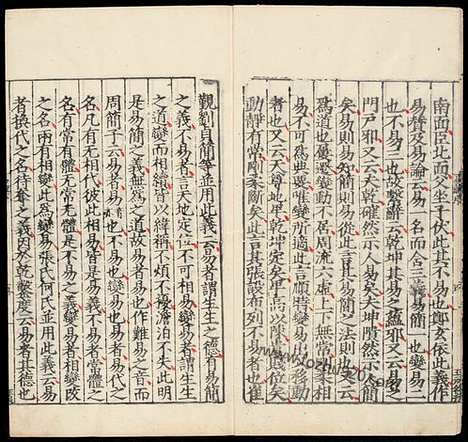 南面臣北面父坐子伏此其不易也鄭玄依此義作
易贊及易論云易一名而含三義易簡一也變易二
也不易三也故繫辭云乾坤其易之蘊邪又云易之
門戶邪又云夫乾確然示人易矣夫坤隤然示人簡
矣易則易知簡則易從此言其易簡之法則也又云
為道也屢遷變動不居周流六虛上下无常剛柔相
易不可為典要唯變所適此言順時變易出入移動
者也又云天尊地卑乾坤定矣卑高以陳貴賤位矣
動靜有常剛柔斷矣此言其張設布列不易者也崔
覲劉貞簡等並用此義云易者謂生生之德有易簡
之義不易者言天地定位不可相易變易者謂生生
之道變而相續皆以緯稱不煩不擾澹泊不失此明
是易簡之義無為之道故易者易也作難易之音而
周簡子云易者易也不易也變易也易者易代之
名凡有无相代彼此相易皆是易義不易者常體之
名有常有體无常无體是不易之義變易者相變改
之名兩有相變此為變易張氏何氏並用此義云易
者換代之名待奪之義因於乾鑿度云易者其德也